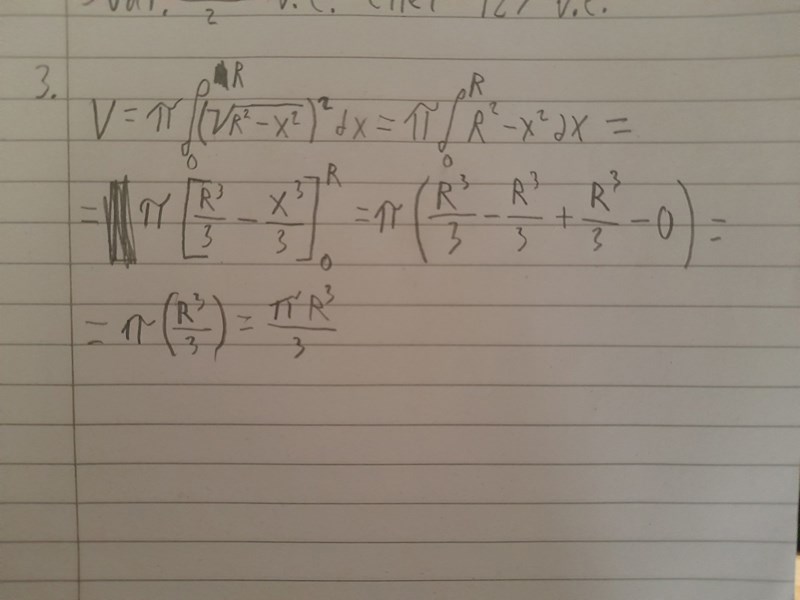 2 v.c.
3.
V = π ∫₀ᴿ (√R² - x²)² dx = π ∫₀ᴿ R² - x² dx =
= π [R³/3 - x³/3]₀ᴿ = π (R³/3 - R³/3 + R³/3 - 0) =
= π (R³/3) = πR³/3